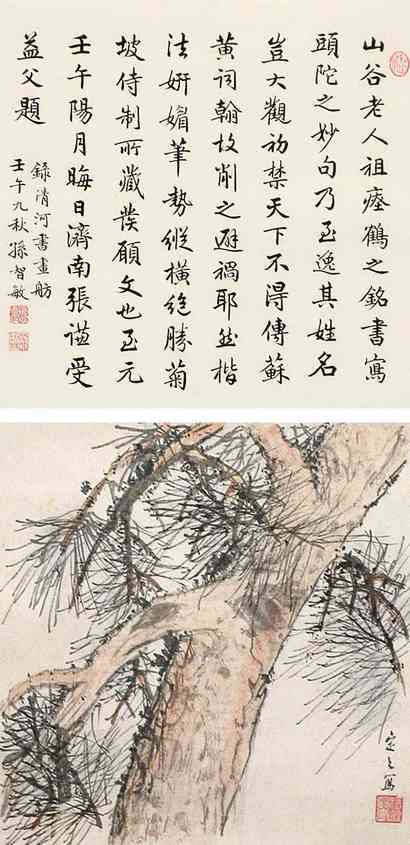 山谷老人祖瘞鶴之銘書寫
頭陀之妙句乃至逸其姓名
豈大觀初禁天下不得傳蘇
黃詞翰故削之避禍耶然楷
法妍媚筆勢縱橫絕勝菊
坡侍制所藏發願文也至元
壬午陽月晦日濟南張謙受
益父題
錄清河書畫舫
壬午九秋孫智敏
定之寫